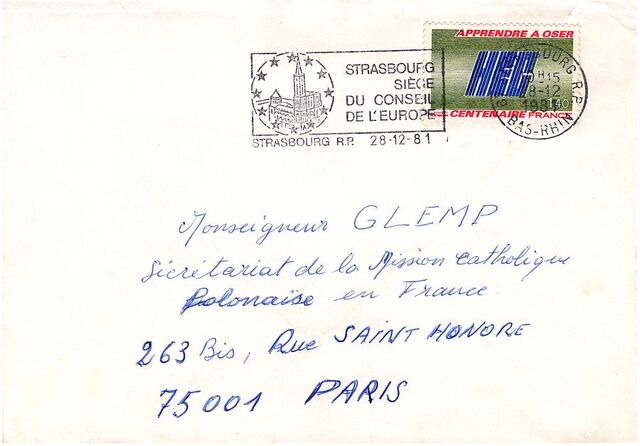 APPRENDRE A OSER
HEC
1,40
CENTENAIRE FRANCE
STRASBOURG
SIÈGE
DU CONSEIL
DE L'EUROPE
STRASBOURG R.P. 28-12-81
STRASBOURG R.P.
H15
28-12
1981
BAS-RHIN
Monseigneur GLEMP
Sécrétariat de la Mission Catholique
Polonaise en France
263 Bis, Rue SAINT HONORE
75001 PARIS